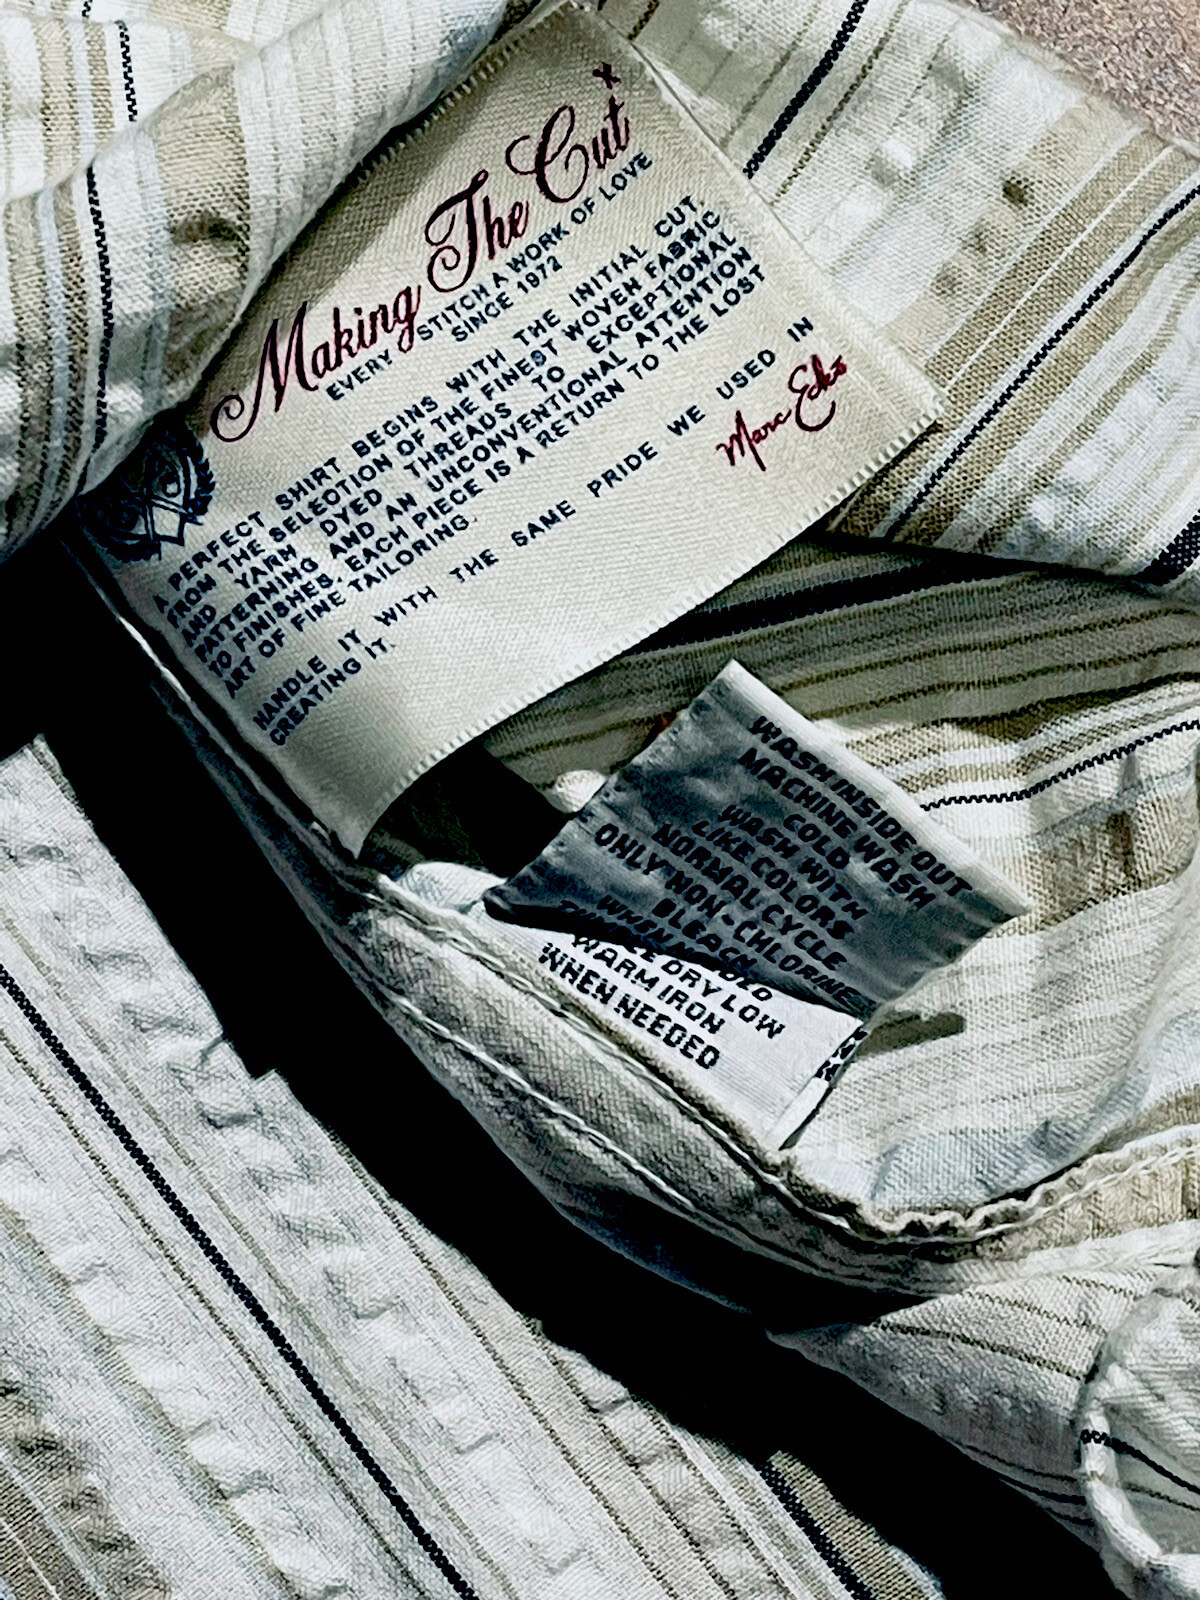 Making The Cut
EVERY STITCH A WORK OF LOVE
SINCE 1972
A PERFECT SHIRT BEGINS WITH THE INITIAL CUT,
FROM THE SELECTION OF THE FINEST WOVEN FABRIC
AND YARN DYED THREADS TO EXCEPTIONAL
PATTERNING AND AN UNCONVENTIONAL ATTENTION
TO FINISHES. EACH PIECE IS A RETURN TO THE LOST
ART OF FINE TAILORING.
HANDLE IT WITH THE SAME PRIDE WE USED IN
CREATING IT.
Marc Ecko
WASH INSIDE OUT
MACHINE WASH
COLD
WASH WITH
LIKE COLORS
NORMAL CYCLE
ONLY NON-CHLORINE
BLEACH
WHEN
DRY LOW
WARM IRON
WHEN NEEDED